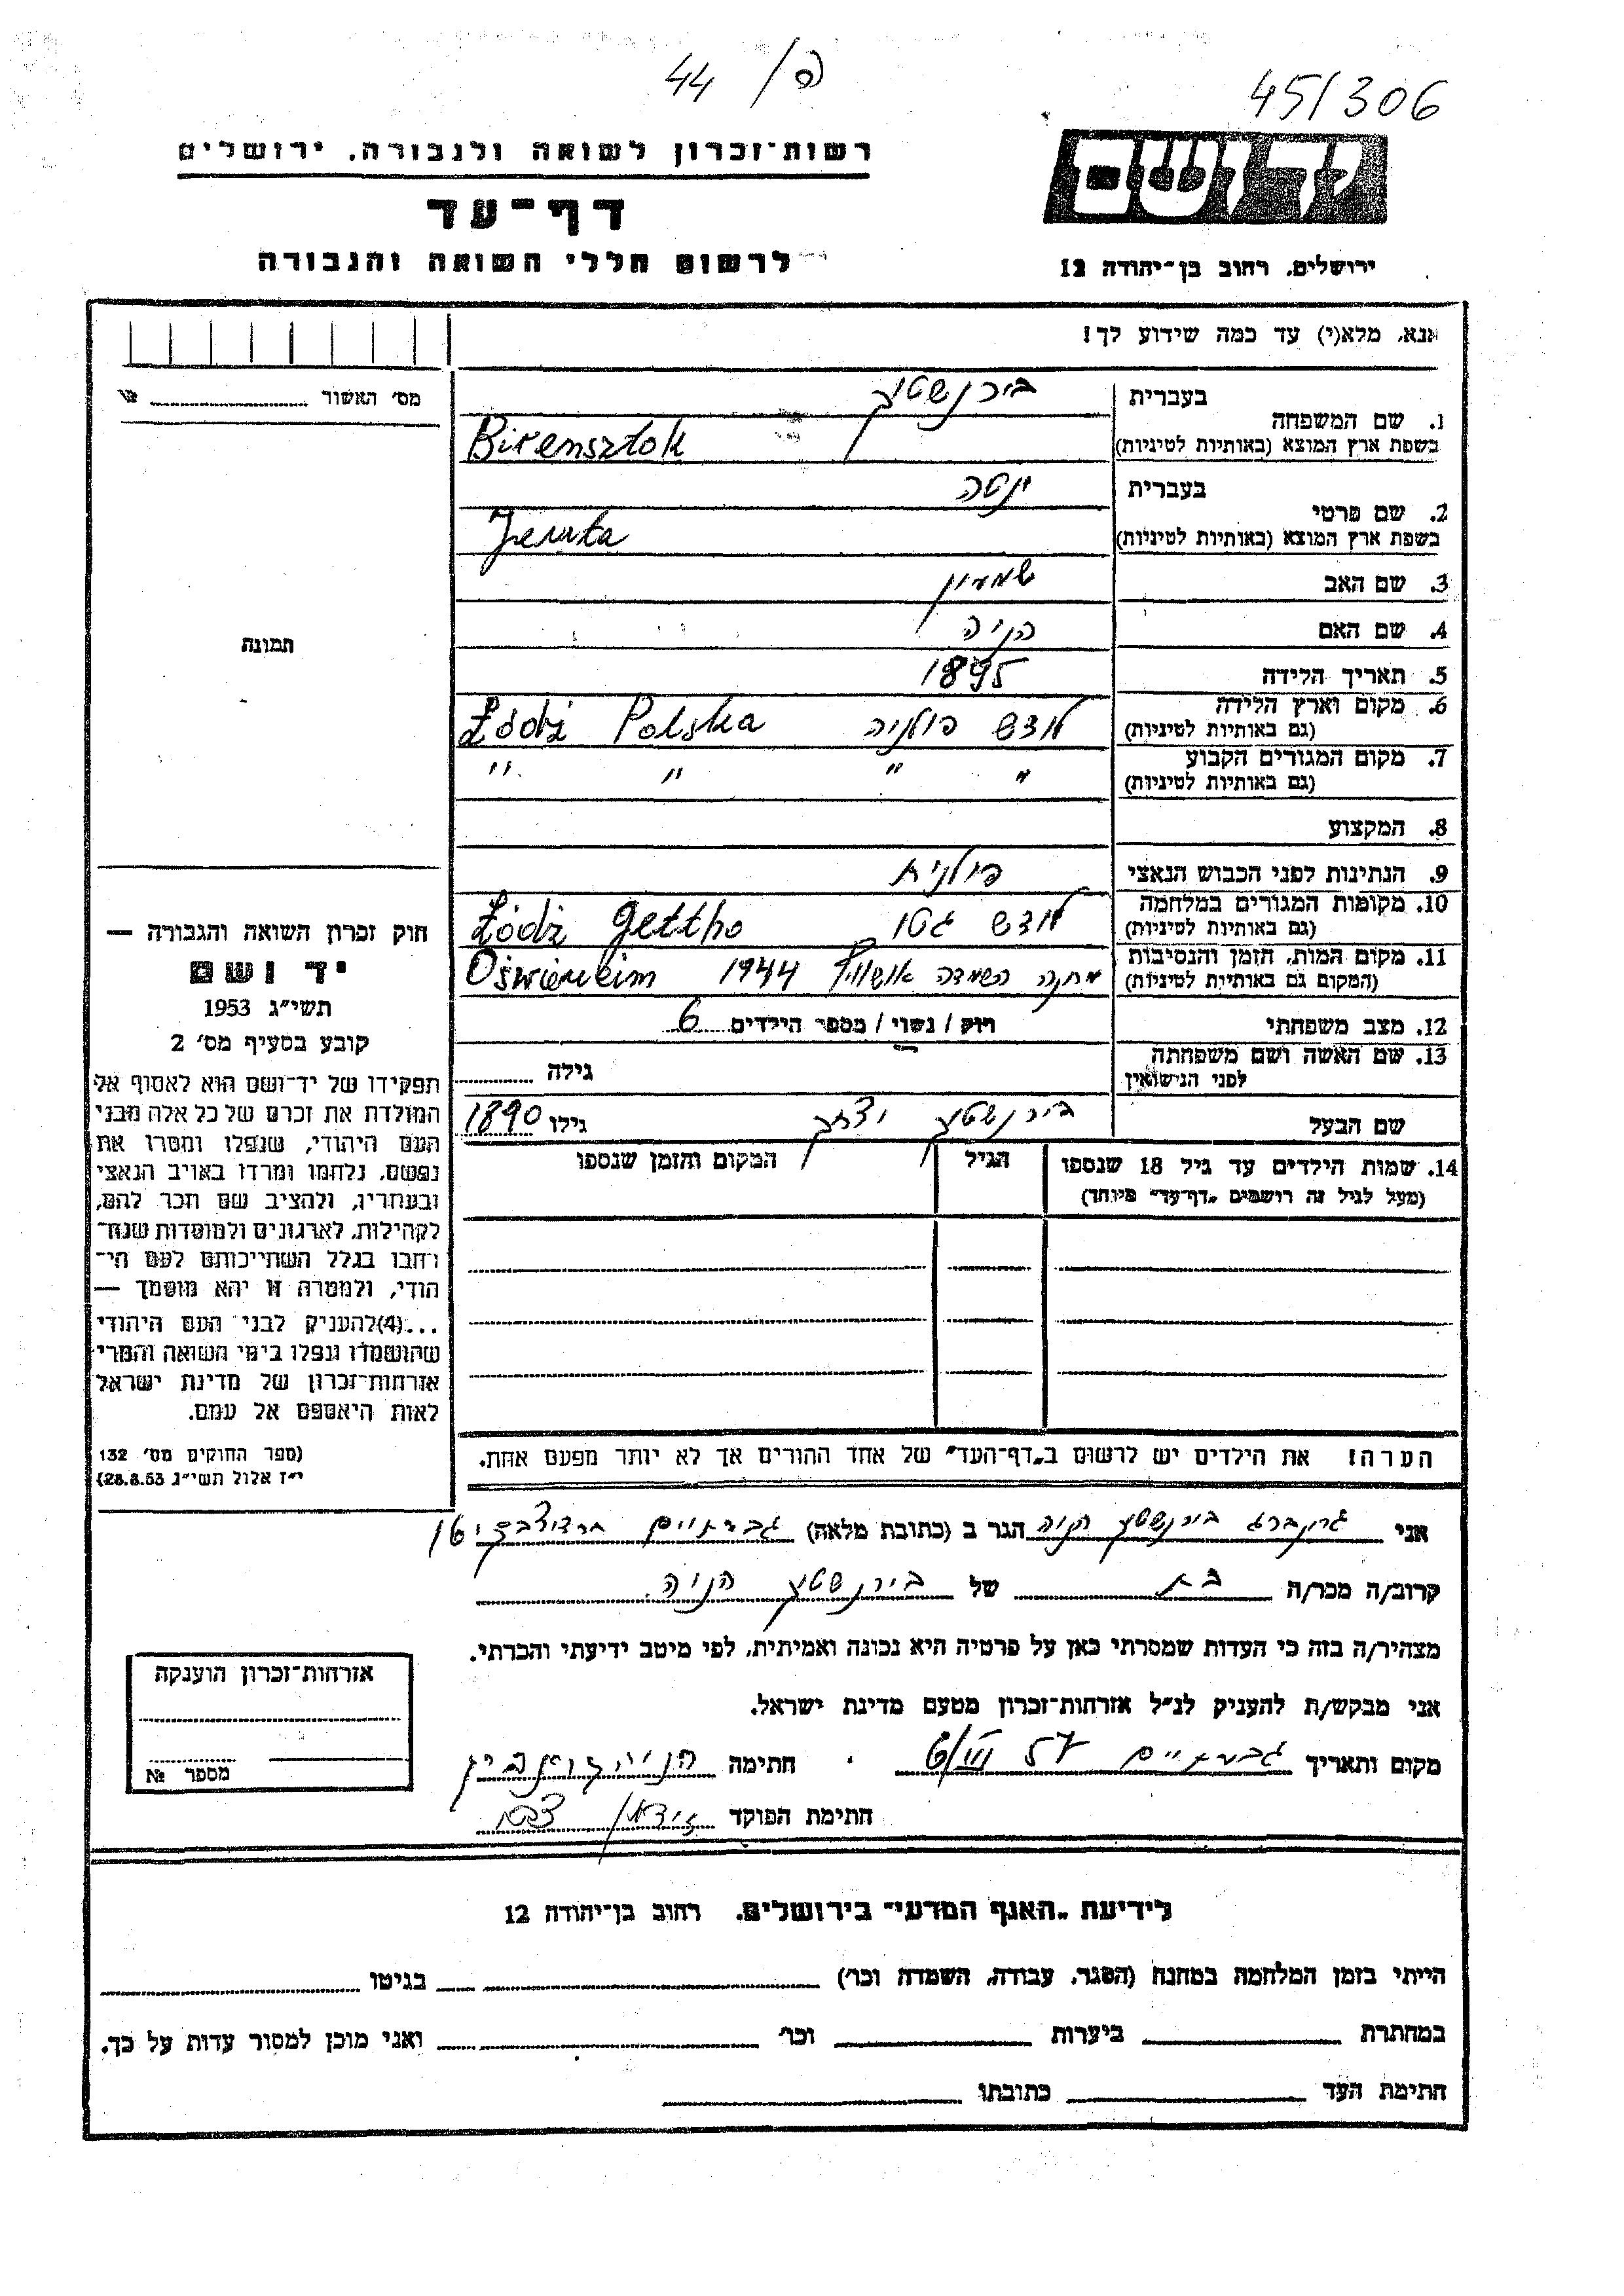 44 /ה
45/306
רשות־זכרון לשואה ולגבורה, ירושלים
יד ושם
דף־עד
לרשום חללי השואה והגבורה
ירושלים, רחוב בן־יהודה 12
אנא, מלא(י) עד כמה שידוע לך!
מס׳ האשור
בעברית בירנשטוק
1. שם המשפחה
בשפת ארץ המוצא (באותיות לטיניות) Birensztok
בעברית ינטה
2. שם פרטי
בשפת ארץ המוצא (באותיות לטיניות) Jenta
3. שם האב שמעון
4. שם האם הניה
5. תאריך הלידה 1895
6. מקום וארץ הלידה לודש פולניה Łódź Polska
(גם באותיות לטיניות)
7. מקום המגורים הקבוע " " " "
(גם באותיות לטיניות)
8. המקצוע
9. הנתינות לפני הכבוש הנאצי פולנית
10. מקומות המגורים במלחמה לודש גטו Łódź Gettho
(גם באותיות לטיניות)
11. מקום המות, הזמן והנסיבות מחנה השמדה אושוויץ 1944 Oświencim
(המקום גם באותיות לטיניות)
12. מצב משפחתי רווק / נשוי / מספר הילדים 6
13. שם האשה ושם משפחתה
לפני הנישואין גילה
שם הבעל בירנשטוק יצחק גילו 1890
14. שמות הילדים עד גיל 18 שנספו הגיל המקום והזמן שנספו
(מעל לגיל זה רושמים „דף־עד״ מיוחד)
הערה! את הילדים יש לרשום ב„דף־העד״ של אחד ההורים אך לא יותר מפעם אחת.
תמונה
חוק זכרון השואה והגבורה —
יד ושם
תשי״ג 1953
קובע בסעיף מס׳ 2
תפקידו של יד־ושם הוא לאסוף אל
המולדת את זכרם של כל אלה מבני
העם היהודי, שנפלו ומסרו את
נפשם, נלחמו ומרדו באויב הנאצי
ובעוזריו, ולהציב שם וזכר להם,
לקהילות, לארגונים ולמוסדות שנח־
רבו בגלל השתייכותם לעם הי־
הודי, ולמטרה זו יהא מוסמך —
...(4)להעניק לבני העם היהודי
שהושמדו ונפלו בימי השואה והמרי
אזרחות־זכרון של מדינת ישראל
לאות היאספם אל עמם.
(ספר החוקים מס׳ 132
י״ז אלול תשי״ג 28.8.53)
אני גרינברג בירנשטוק הניה הגר ב (כתובת מלאה) גבעתיים
קרוב/ה מכר/ה בת של בירנשטוק הניה
מצהיר/ה בזה כי העדות שמסרתי כאן על פרטיה היא נכונה ואמיתית, לפי מיטב ידיעתי והכרתי.
אני מבקש/ת להעניק לנ״ל אזרחות־זכרון מטעם מדינת ישראל.
מקום ותאריך גבעתיים חתימה
חתימת הפוקד
אזרחות־זכרון הוענקה
מספר №
לידיעת „האגף המדעי״ בירושלים, רחוב בן־יהודה 12
הייתי בזמן המלחמה במחנה (הסגר, עבודה, השמדה וכו׳) בגיטו
במחתרת ביערות וכו׳ ואני מוכן למסור עדות על כך.
חתימת העד כתובתו